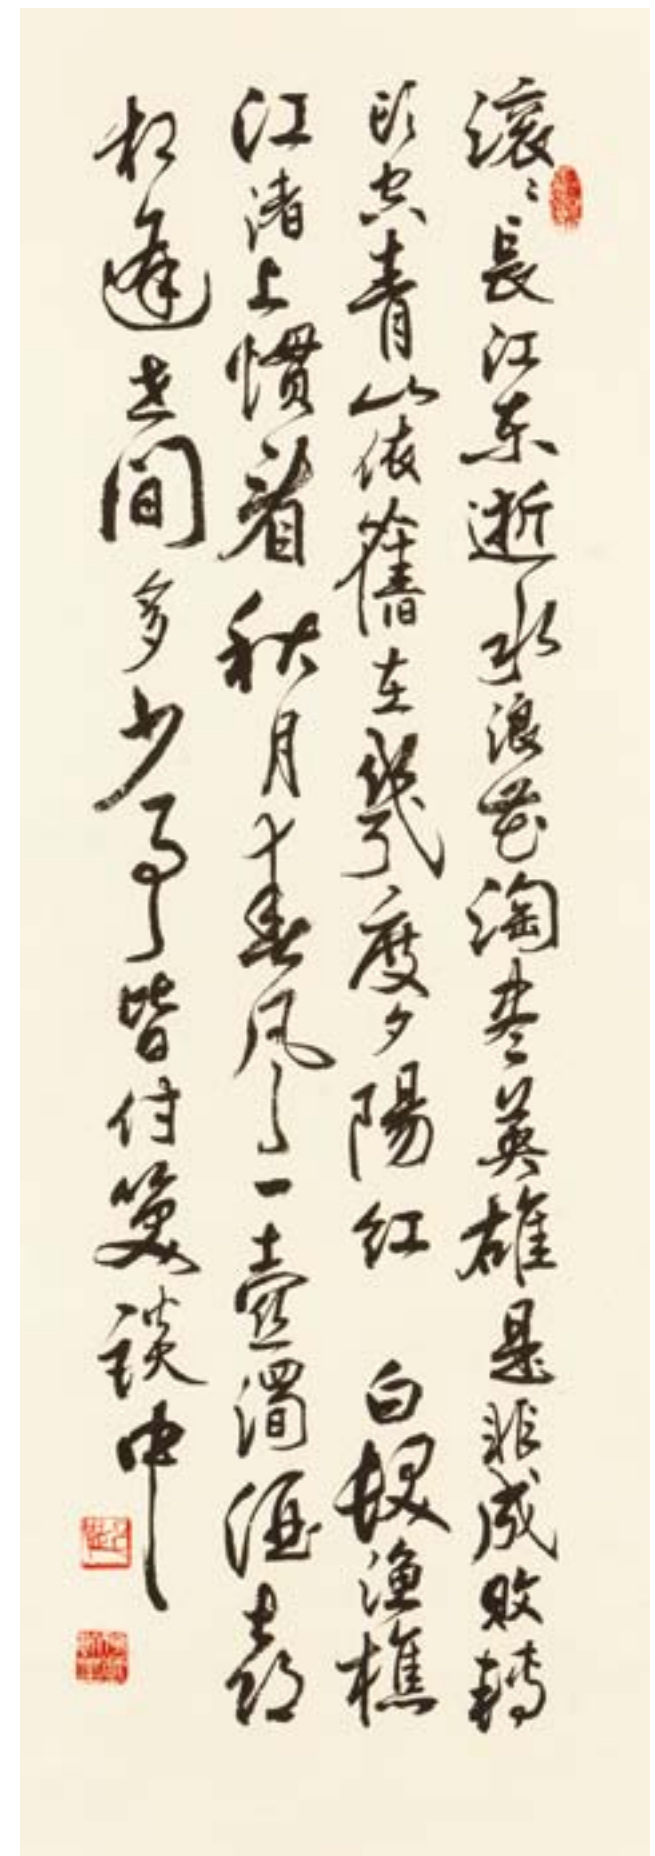 滚〻長江东逝水浪花淘尽英雄是非成败轉
頭空青山依舊在幾度夕陽红 白髮渔樵
江渚上慣看秋月春风一壺濁酒喜
相逢世間多少事皆付笑談中